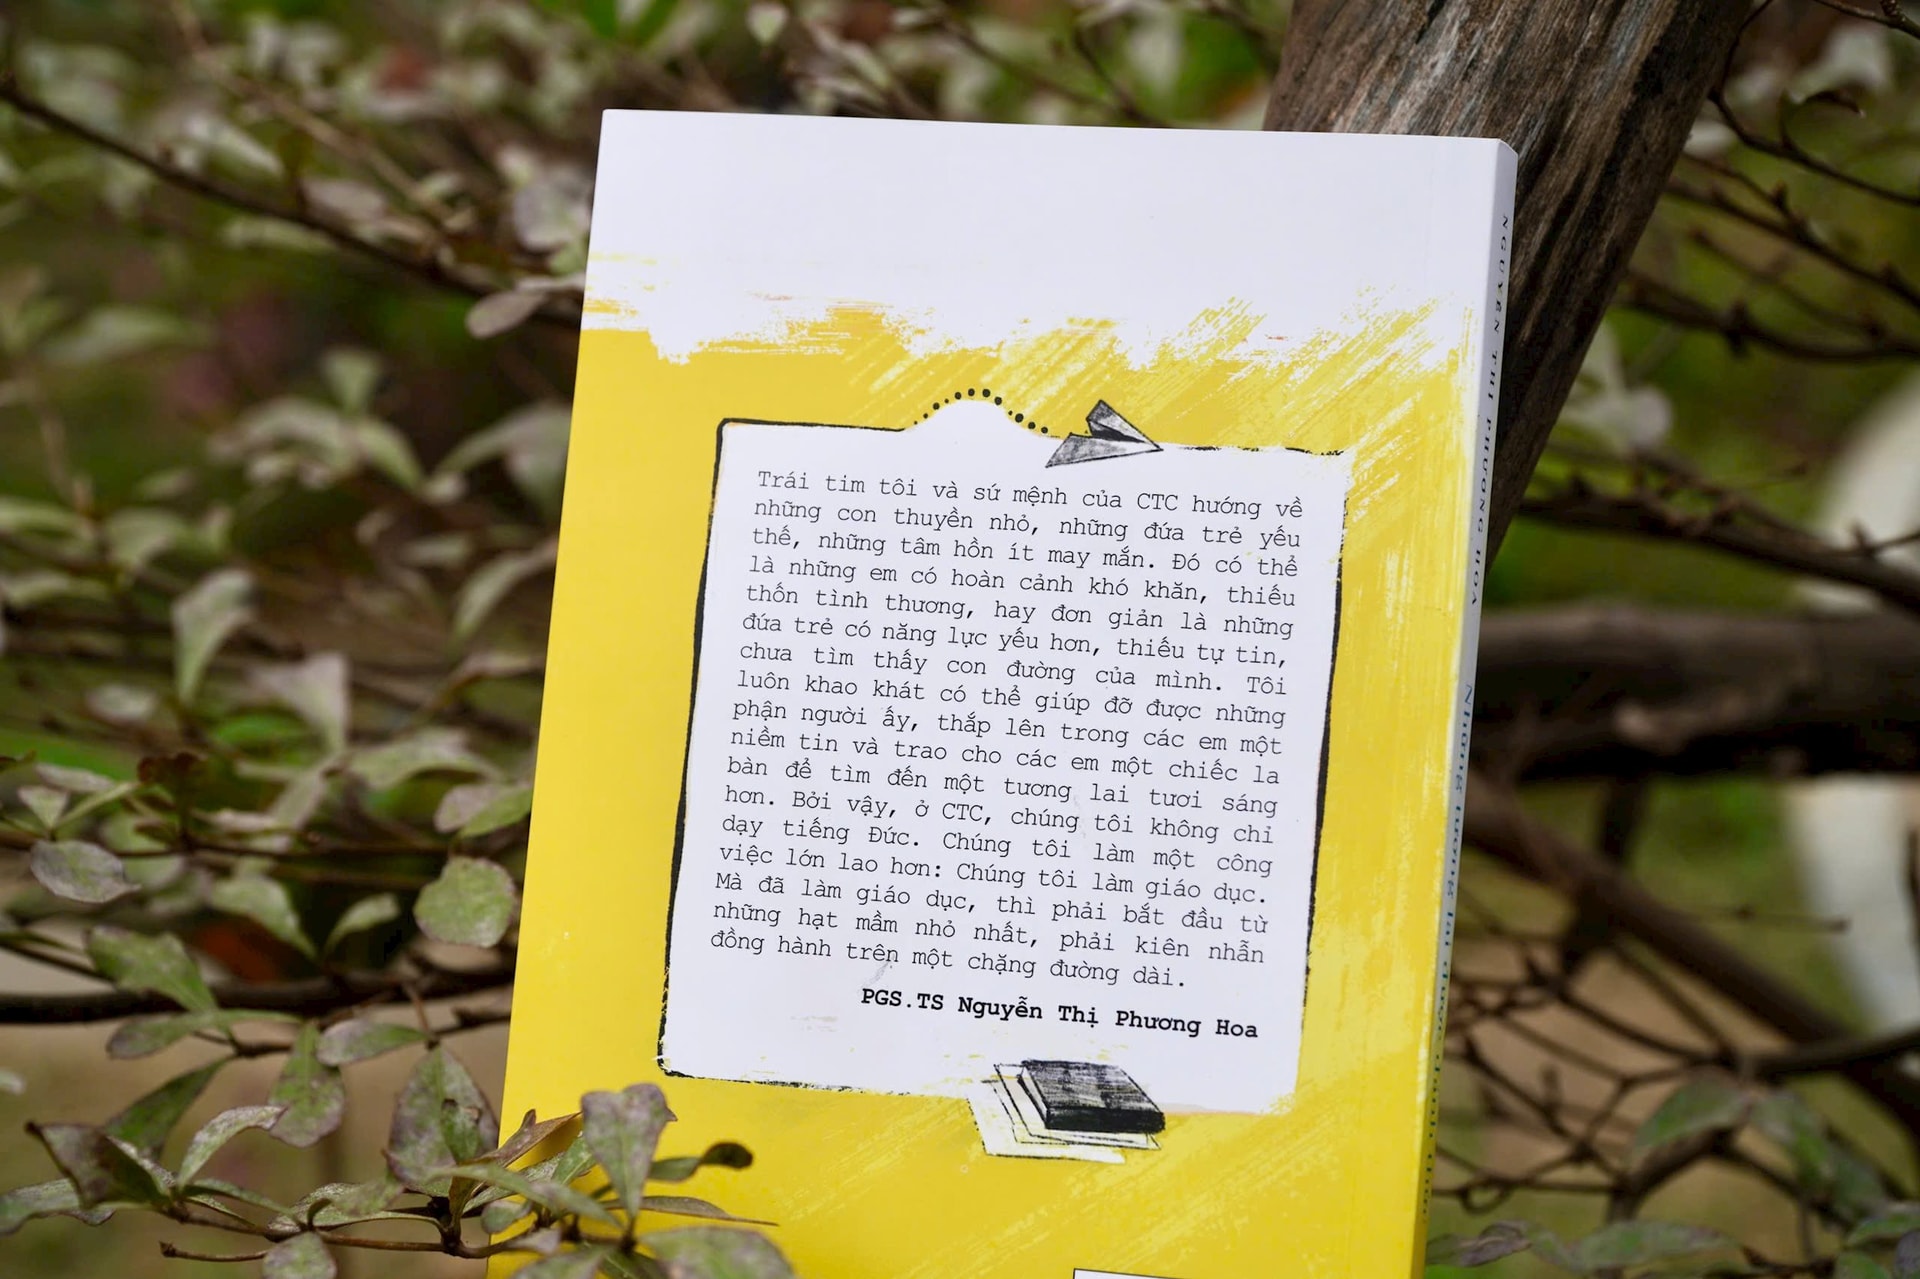 Trái tim tôi và sứ mệnh của CTC hướng về
những con thuyền nhỏ, những đứa trẻ yếu
thế, những tâm hồn ít may mắn. Đó có thể
là những em có hoàn cảnh khó khăn, thiếu
thốn tình thương, hay đơn giản là những
đứa trẻ có năng lực yếu hơn, thiếu tự tin,
chưa tìm thấy con đường của mình. Tôi
luôn khao khát có thể giúp đỡ được những
phận người ấy, thắp lên trong các em một
niềm tin và trao cho các em một chiếc la
bàn để tìm đến một tương lai tươi sáng
hơn. Bởi vậy, ở CTC, chúng tôi không chỉ
dạy tiếng Đức. Chúng tôi làm một công
việc lớn lao hơn: Chúng tôi làm giáo dục.
Mà đã làm giáo dục, thì phải bắt đầu từ
những hạt mầm nhỏ nhất, phải kiên nhẫn
đồng hành trên một chặng đường dài.
PGS.TS Nguyễn Thị Phương Hoa
NGUYỄN THỊ PHƯƠNG HOA
Những tương lai được đánh thức